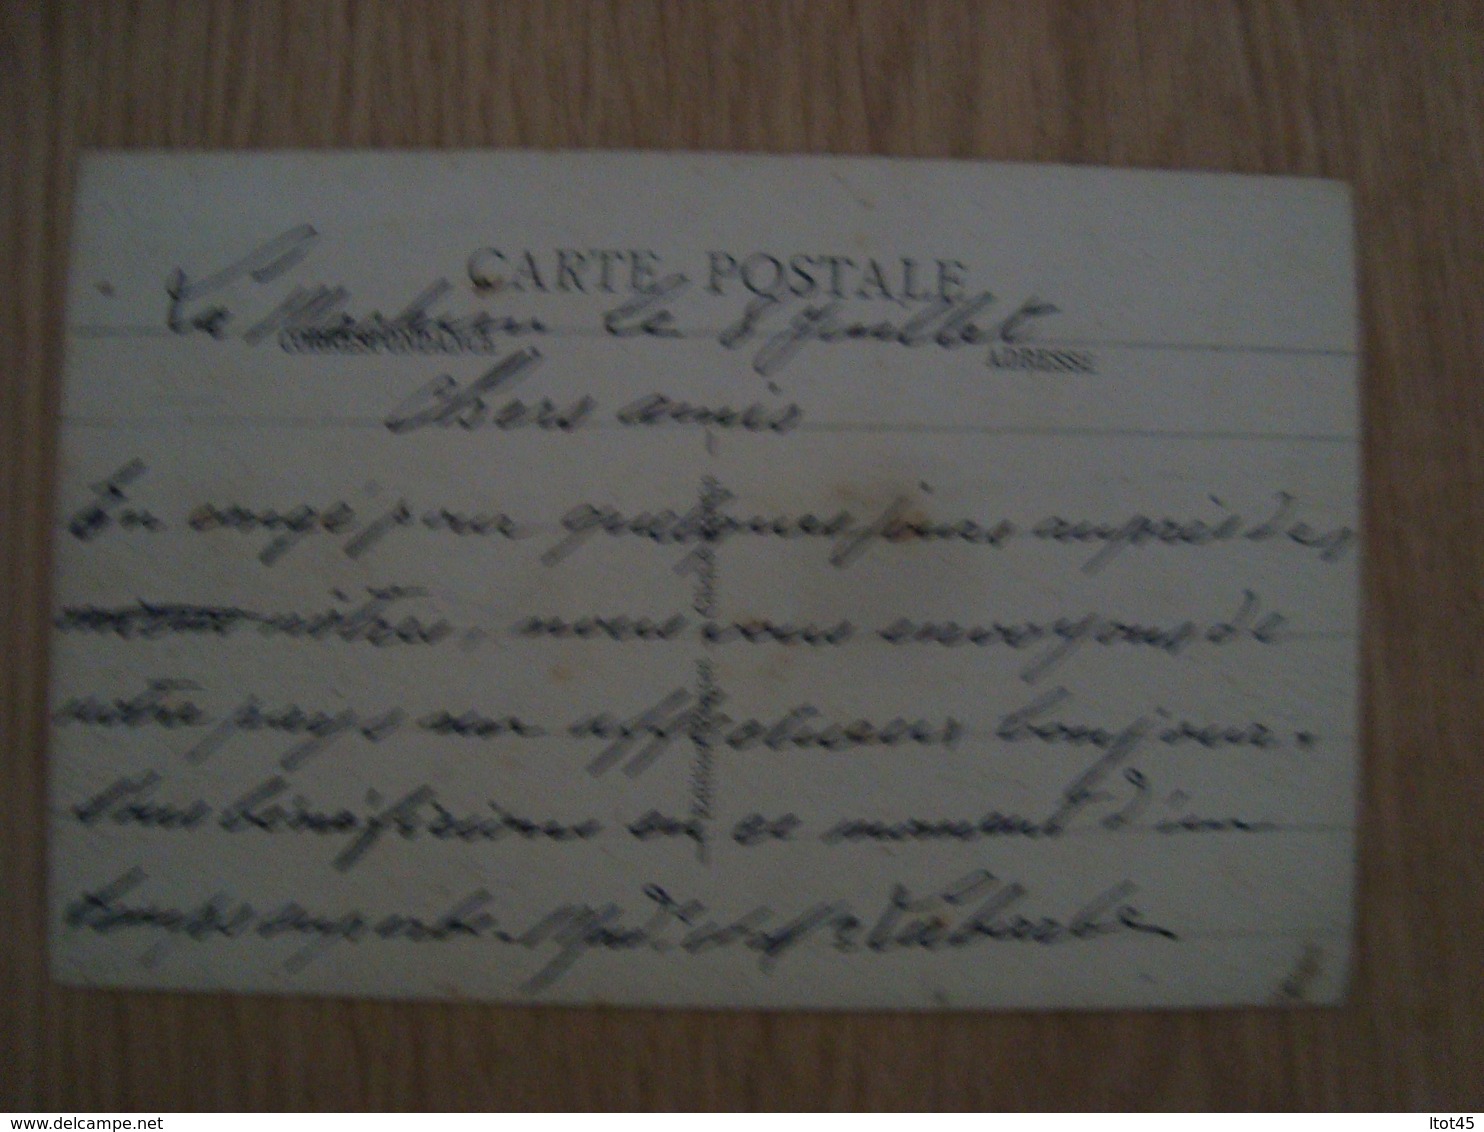 CARTE POSTALE
le 8 Juillet
CORRESPONDANCE
ADRESSE
Chers amis
En congé pour quelques jours auprès des
nôtres, nous vous envoyons de
notre pays un affectueux bonjour.
Nous bénéficions en ce moment d'un
temps superbe.
delcampe.net
ltot45